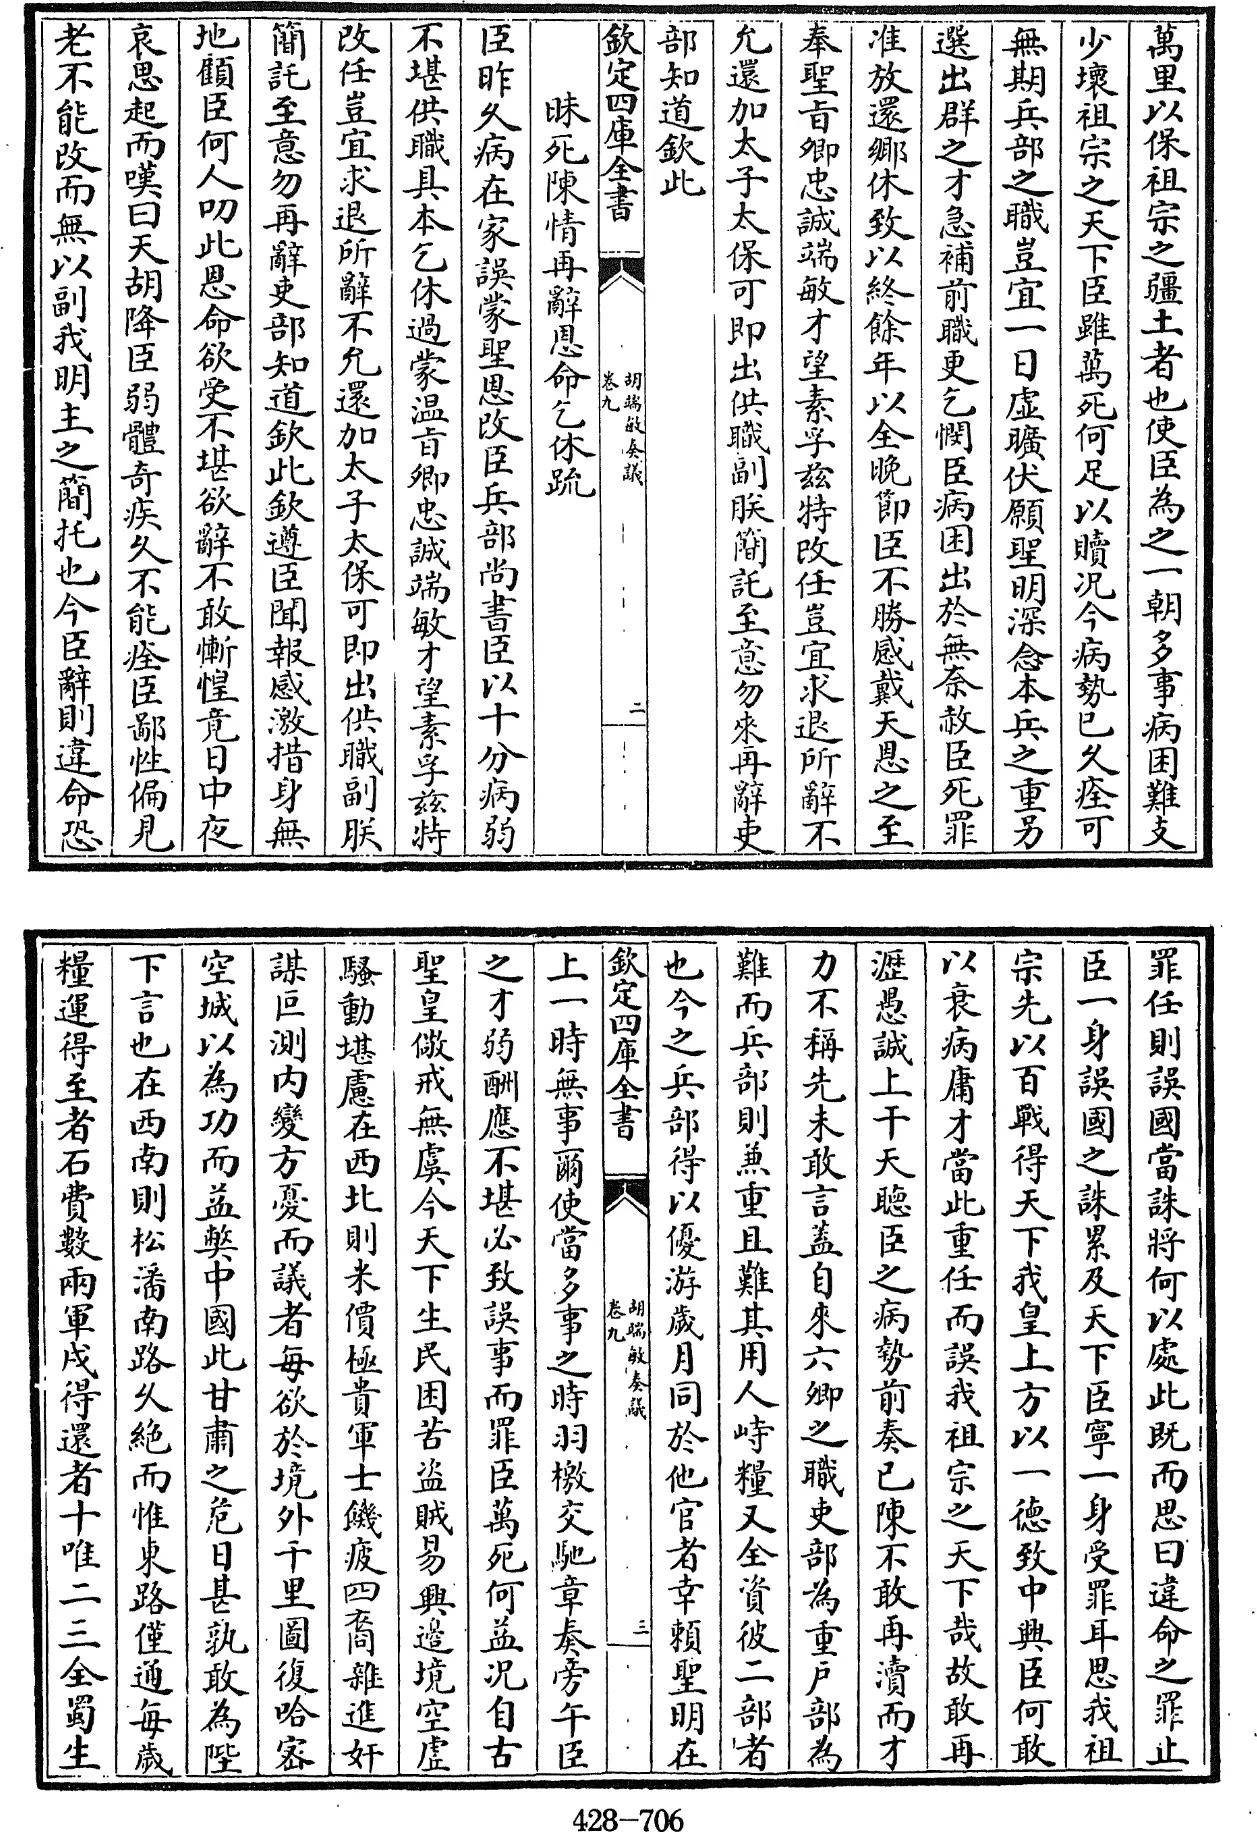 萬里以保祖宗之疆土者也使臣為之一朝多事病困難支
少壞祖宗之天下臣雖萬死何足以贖况今病勢已久痊可
無期兵部之職豈宜一日虛曠伏願聖明深念本兵之重另
選出群之才急補前職更乞憫臣病困出於無奈赦臣死罪
准放還鄉休致以終餘年以全晚節臣不勝感戴天恩之至
奉聖旨卿忠誠端敏才望素孚兹特改任豈宜求退所辭不
允還加太子太保可即出供職副朕簡託至意勿來再辭吏
部知道欽此
欽定四庫全書
胡端敏奏議
卷九
二
昧死陳情再辭恩命乞休疏
臣昨久病在家誤蒙聖恩改臣兵部尚書臣以十分病弱
不堪供職具本乞休過蒙温旨卿忠誠端敏才望素孚兹特
改任豈宜求退所辭不允還加太子太保可即出供職副朕
簡託至意勿再辭吏部知道欽此欽遵臣聞報感激措身無
地顧臣何人叨此恩命欲受不堪欲辭不敢慚惶竟日中夜
哀思起而嘆曰天胡降臣弱體奇疾久不能痊臣鄙性偏見
老不能改而無以副我明主之簡托也今臣辭則違命恐
罪任則誤國當誅將何以處此既而思曰違命之罪止
臣一身誤國之誅累及天下臣寧一身受罪耳思我祖
宗先以百戰得天下我皇上方以一德致中興臣何敢
以衰病庸才當此重任而誤我祖宗之天下哉故敢再
瀝愚誠上干天聽臣之病勢前奏已陳不敢再瀆而才
力不稱先未敢言蓋自來六卿之職吏部為重戶部為
難而兵部則兼重且難其用人峙糧又全資彼二部者
也今之兵部得以優游歲月同於他官者幸賴聖明在
欽定四庫全書
胡端敏奏議
卷九
三
上一時無事爾使當多事之時羽檄交馳章奏旁午臣
之才弱酬應不堪必致誤事而罪臣萬死何益况自古
聖皇儆戒無虞今天下生民困苦盜賊易興邉境空虛
騷動堪慮在西北則米價極貴軍士饑疲四裔雜進奸
謀叵測内變方憂而議者每欲於境外千里圖復哈密
空城以為功而益弊中國此甘肅之危日甚孰敢為陛
下言也在西南則松潘南路久絶而惟東路僅通每歲
糧運得至者石費數兩軍戍得還者十唯二三全蜀生
428-706